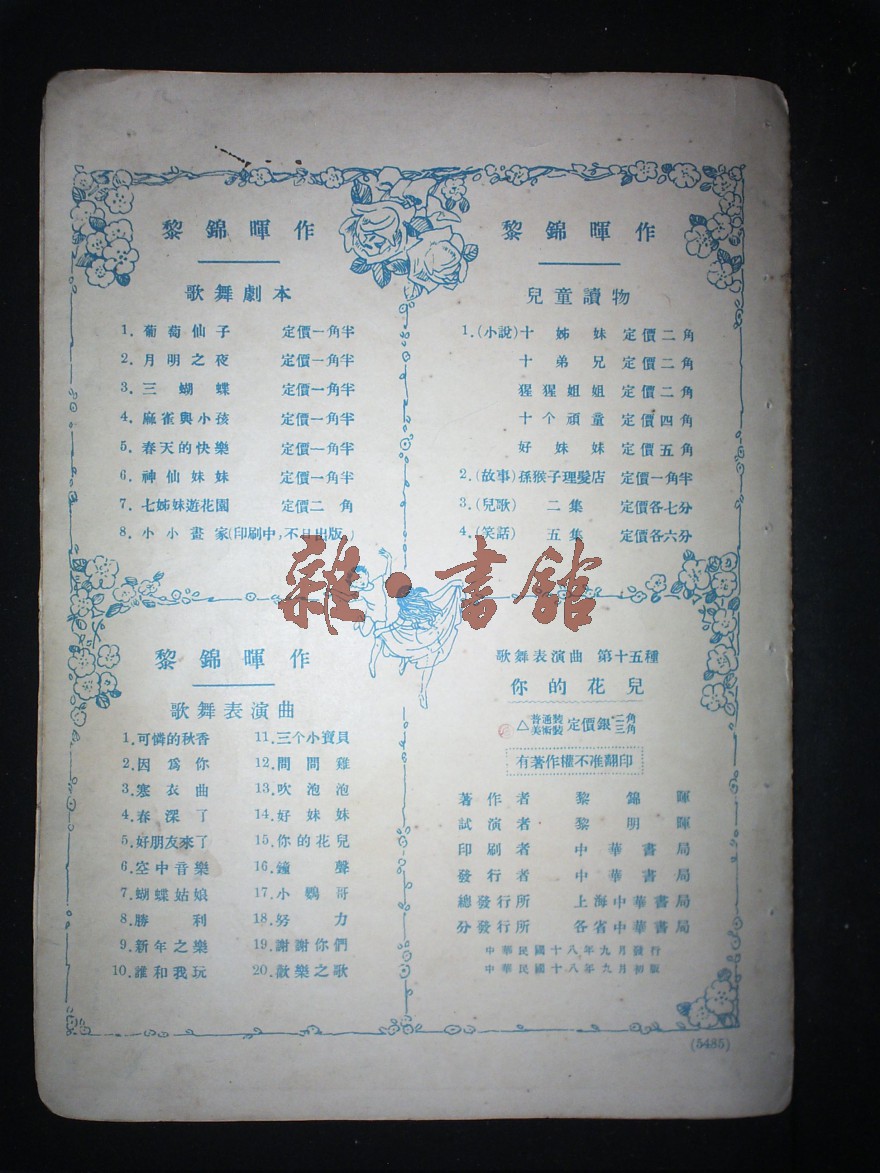 黎錦暉作
歌舞劇本
1. 葡萄仙子 定價一角半
2. 月明之夜 定價一角半
3. 三蝴蝶 定價一角半
4. 麻雀與小孩 定價一角半
5. 春天的快樂 定價一角半
6. 神仙妹妹 定價一角半
7. 七姊妹遊花園 定價二角
8. 小小畫家(印刷中,不日出版)
黎錦暉作
兒童讀物
1. (小說) 十姊妹 定價二角
十弟兄 定價二角
猩猩姐姐 定價二角
十个頑童 定價四角
好妹妹 定價五角
2. (故事) 孫猴子理髮店 定價一角半
3. (兒歌) 二集 定價各七分
4. (笑話) 五集 定價各六分
雜·書館
黎錦暉作
歌舞表演曲
1. 可憐的秋香
2. 因爲你
3. 寒衣曲
4. 春深了
5. 好朋友來了
6. 空中音樂
7. 蝴蝶姑娘
8. 勝利
9. 新年之樂
10. 誰和我玩
11. 三个小寶貝
12. 問問雞
13. 吹泡泡
14. 好妹妹
15. 你的花兒
16. 鐘聲
17. 小鸚哥
18. 努力
19. 謝謝你們
20. 歡樂之歌
歌舞表演曲 第十五種
你的花兒
△普通裝 定價銀 二角
美術裝 三角
有著作權不准翻印
著作者 黎錦暉
試演者 黎明暉
印刷者 中華書局
發行者 中華書局
總發行所 上海中華書局
分發行所 各省中華書局
中華民國十八年九月發行
中華民國十八年九月初版
(5485)